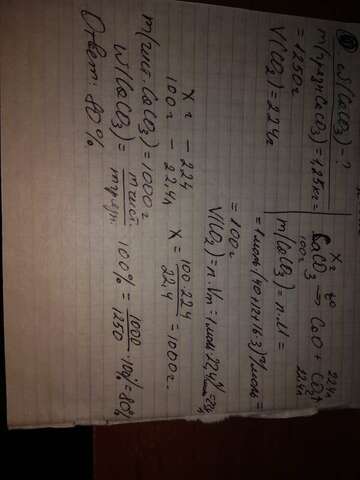 ω(CaCO₃) - ?
m(гряз CaCO₃) = 1,25кг =
= 1250г
V(CO₂) = 224л
Xг 224л
CaCO₃ → CaO + CO₂↑
100г 22,4л
m(CaCO₃) = n·M =
= 1моль(40+12+16·3)г/моль =
= 100г
V(CO₂) = n·Vm = 1моль·22,4
Xг - 224
100г - 22,4л
X = 100·224 / 22,4 = 1000г.
m(чист. CaCO₃) = 1000г
W(CaCO₃) = mчист. / mгрязн. · 100% = 1000 / 1250 · 100% = 80%
Ответ: 80%